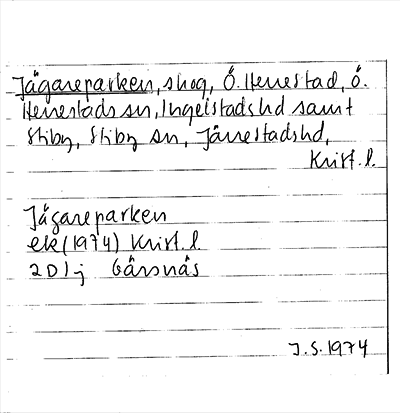 Jägareparken, skog, Ö. Herrestad, Ö.
Herrestads sn, Ingelstads hd samt
Stiby, Stiby sn, Järrestads hd,
Krist. l.
Jägareparken
ek (1974) Krist. l.
2D1j Gärsnäs
J.S. 1974